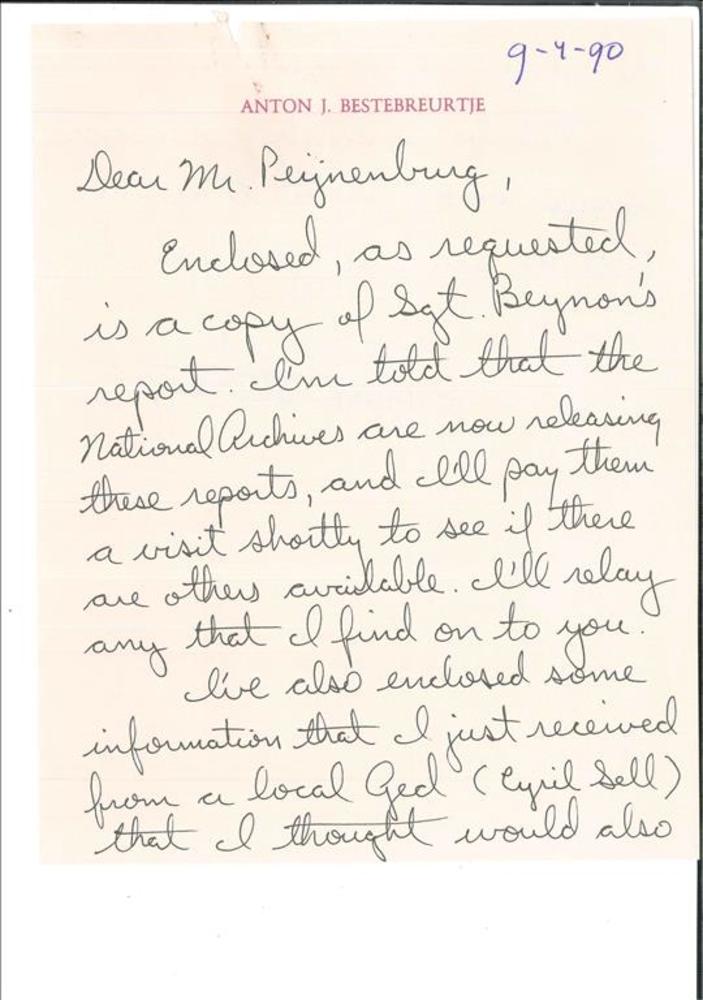 9-4-90
ANTON J. BESTEBREURTJE
Dear Mr. Peijnenburg,
Enclosed, as requested,
is a copy of Sgt. Beynon's
report. I'm told that the
National Archives are now releasing
these reports, and I'll pay them
a visit shortly to see if there
are others available. I'll relay
any that I find on to you.
I've also enclosed some
information that I just received
from a local Jed (Cyril Sell)
that I thought would also